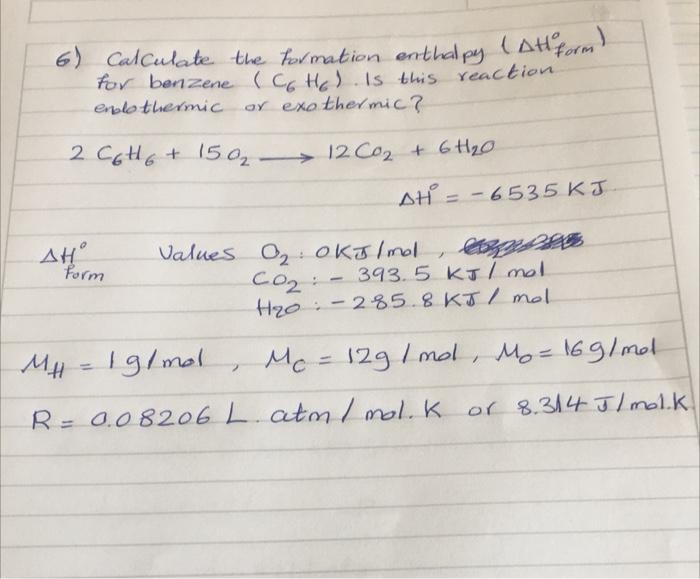 6) Calculate the formation enthalpy (ΔH°form)
for benzene (C6H6). Is this reaction
endothermic or exothermic?
2 C6H6 + 15O2 → 12CO2 + 6H2O
ΔH° = -6535 KJ
ΔH°form Values O2: 0KJ/mol,
CO2: - 393.5 KJ/mol
H2O: -285.8 KJ/mol
MH = 1g/mol, MC = 12g/mol, MO = 16g/mol
R = 0.08206 L. atm/mol.K or 8.314 J/mol.K